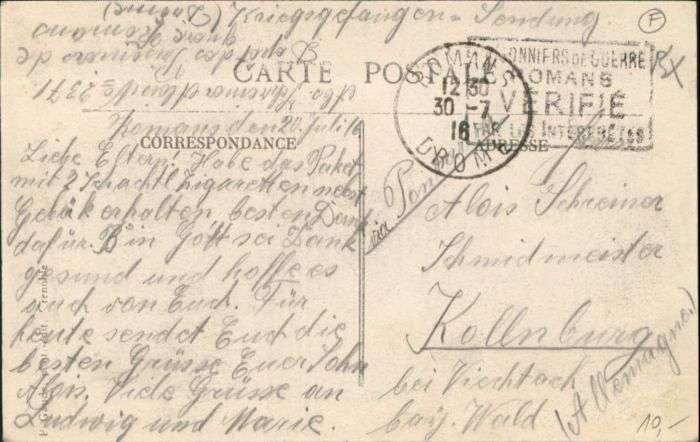 Kriegsgefangen-Sendung
F
CARTE POSTALE
ROMANS
12 30
30 -7
16
DROME
PRISONNIERS DE GUERRE
ROMANS
VÉRIFIÉ
PAR LES INTERPRÈTES
Romans den 20. Juli 16
CORRESPONDANCE
Liebe Eltern! Habe das Paket
mit 2 Schachtl Zigaretten nebst
Gebäk erhalten besten Dank
dafür. Bin Gott sei Dank
gesund und hoffe es
auch von Euch. Für
heute sendet Euch die
besten Grüsse Euer Sohn
Alois. Viele Grüsse an
Ludwig und Marie.
ADRESSE
via
Alois Schreiner
Schmidmeister
Kollnburg
bei Viechtach
bay. Wald
(Allemagne)
10,-